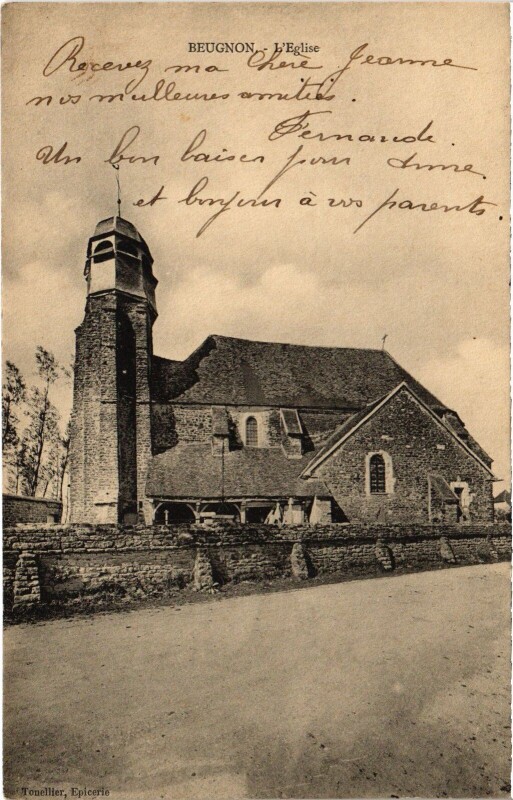 BEUGNON. - L'Eglise
Recevez ma Chère Jeanne
nos meilleures amitiés.
Fernande.
Un bon baiser pour Anne.
et bonjour à vos parents.
Tonellier, Epicerie